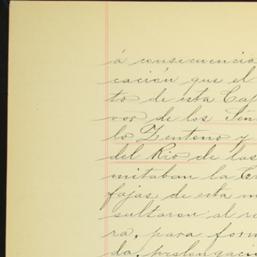 á consecuencia
cacion que el
to de esta Ca
vor de los
lo Zenteno y
del Rio de las
mitaban la
fajas de esta
sultaron al re
ra, para for
da, prolongació